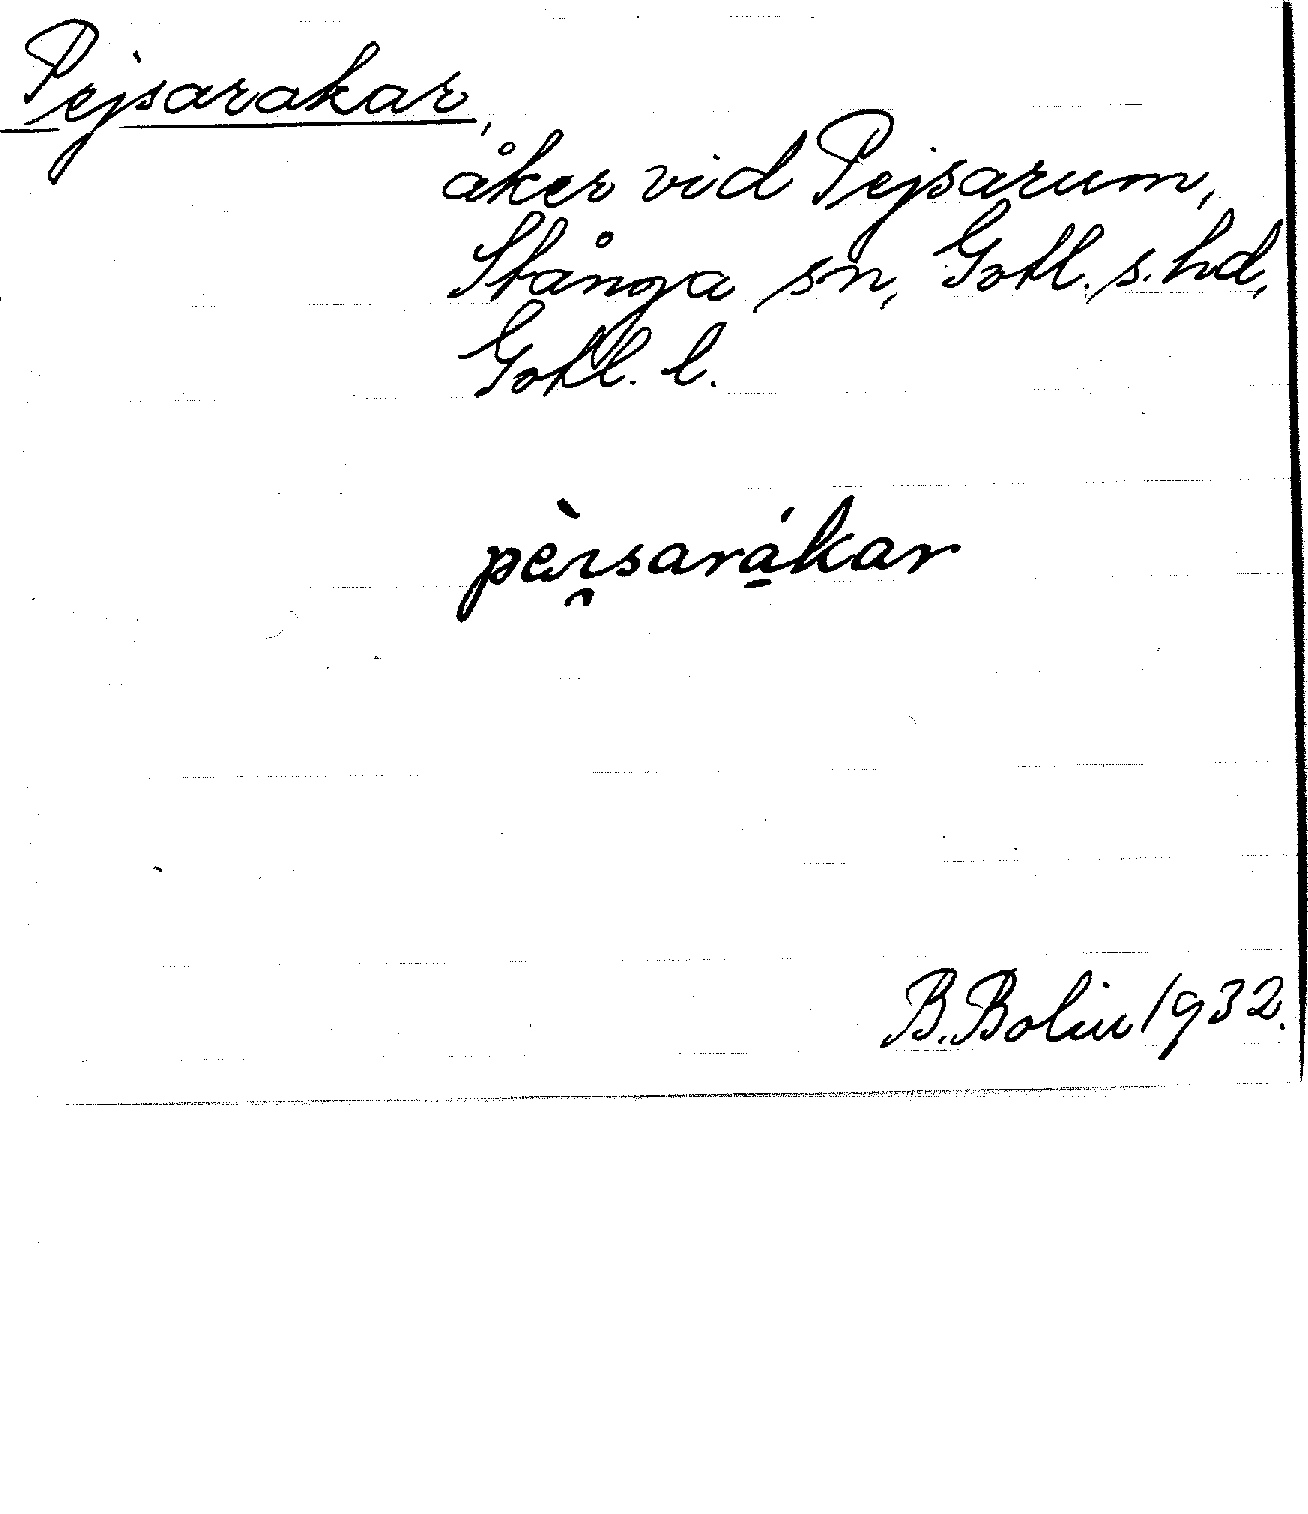 Pejsarakar,
åker vid Pejsarum,
Stånga sn, Gotl. s. hd,
Gotl. l.
pèı̯sará̱kar
B. Bolin 1932.